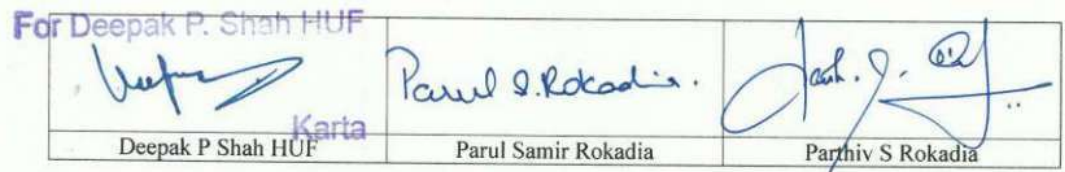 For Deepak P. Shah HUF
Parul S. Rokadia.
Karta
Deepak P Shah HUF
Parul Samir Rokadia
Parthiv S Rokadia